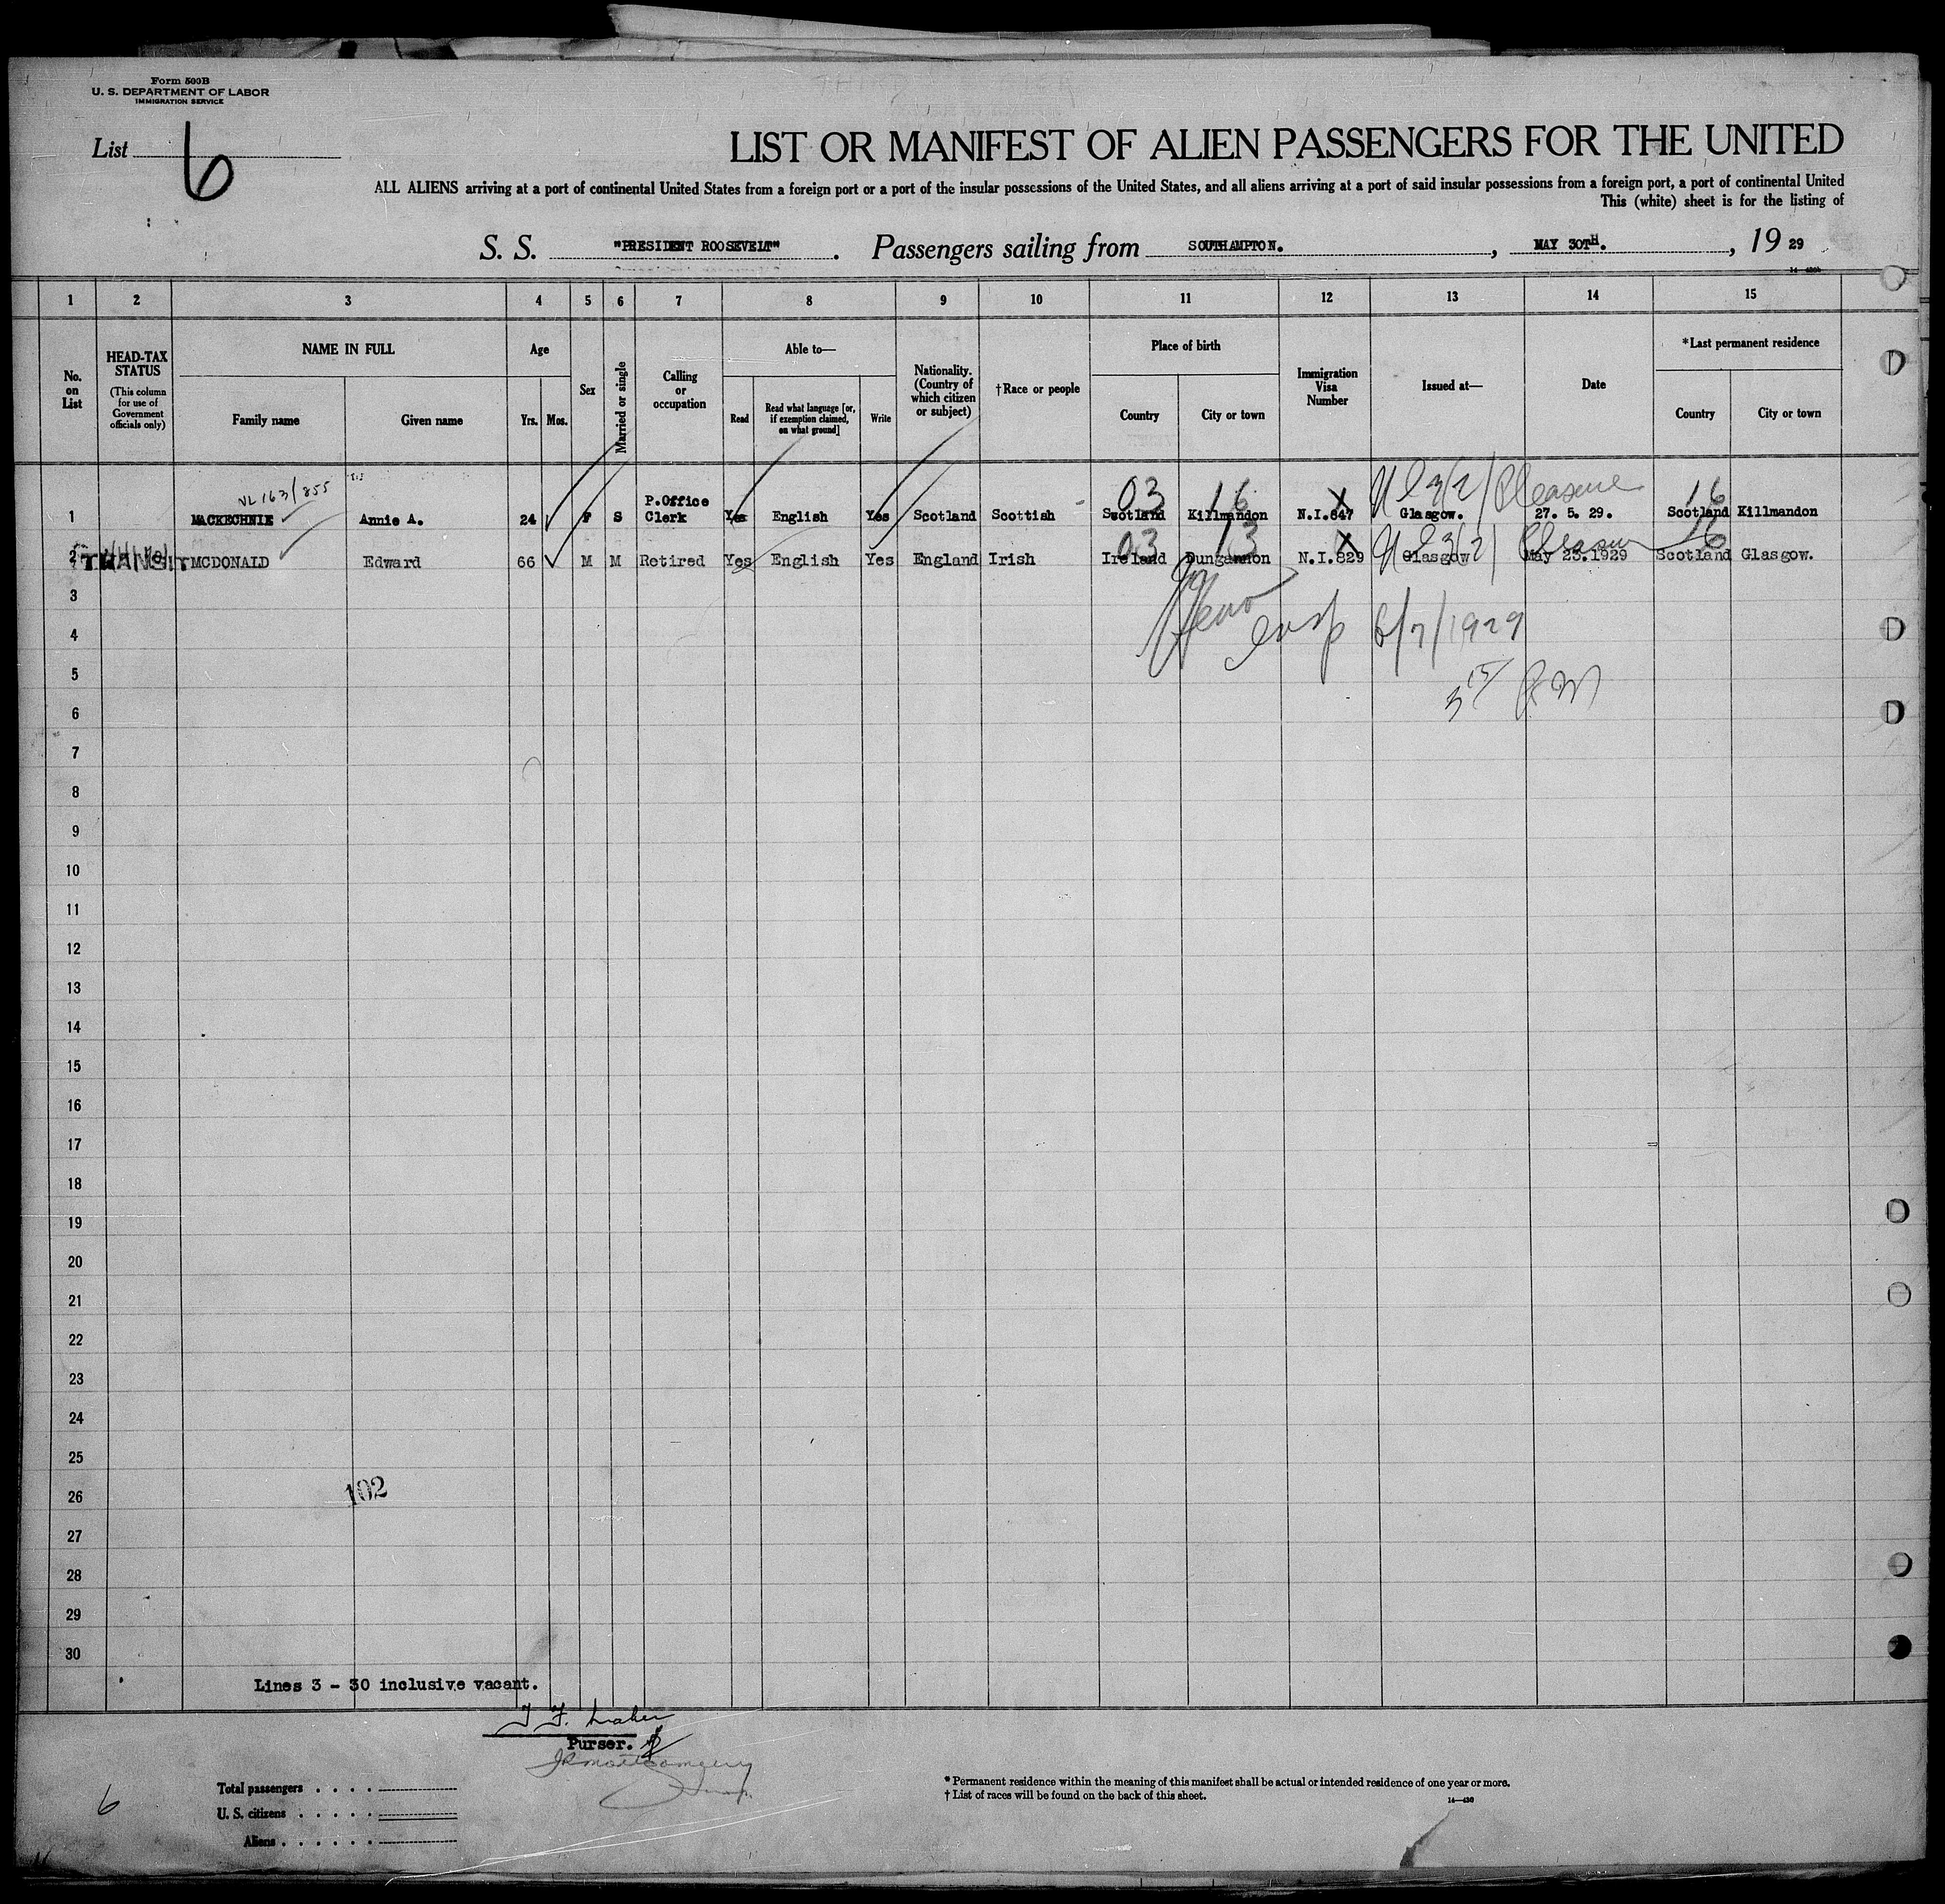 Form 500B
U. S. DEPARTMENT OF LABOR
IMMIGRATION SERVICE
List 6
LIST OR MANIFEST OF ALIEN PASSENGERS FOR THE UNITED
ALL ALIENS arriving at a port of continental United States from a foreign port or a port of the insular possessions of the United States, and all aliens arriving at a port of said insular possessions from a foreign port, a port of continental United
This (white) sheet is for the listing of
S. S. "PRESIDENT ROOSEVELT". Passengers sailing from SOUTHAMPTON., MAY 30TH., 19 29
1 2 3 4 5 6 7 8 9 10 11 12 13 14 15
No. on List
HEAD-TAX STATUS
(This column for use of Government officials only)
NAME IN FULL
Family name Given name
Age
Yrs. Mos.
Sex
Married or single
Calling or occupation
Able to—
Read Read what language [or, if exemption claimed, on what ground] Write
Nationality. (Country of which citizen or subject)
†Race or people
Place of birth
Country City or town
Immigration Visa Number
Issued at—
Date
*Last permanent residence
Country City or town
VL 163/855
03 16 Pleasure 16
1 MACKECHNIE Annie A. 24 F S P.Office Clerk Yes English Yes Scotland Scottish Scotland Killmandon N.I.847 Glasgow. 27. 5. 29. Scotland Killmandon
03 13 Pleasure 16
2 TRANSIT MCDONALD Edward 66 M M Retired Yes English Yes England Irish Ireland Dungannon N.I.829 Glasgow May 23.1929 Scotland Glasgow.
3
4
insp 6/7/1929
5
3 15 P.M
6
7
8
9
10
11
12
13
14
15
16
17
18
19
20
21
22
23
24
25
26
102
27
28
29
30
Lines 3 - 30 inclusive vacant.
Purser.
JRMontgomery
6
Total passengers
U. S. citizens
Aliens
* Permanent residence within the meaning of this manifest shall be actual or intended residence of one year or more.
† List of races will be found on the back of this sheet.
14—430